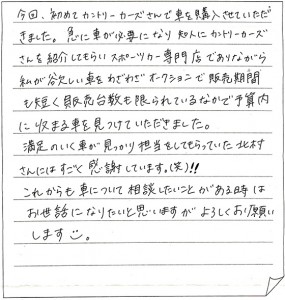 今回、初めてカントリーカーズさんで車を購入させていただ
きました。急に車が必要になり知人にカントリーカーズ
さんを紹介してもらいスポーツカー専門店でありながら
私が欲しい車をわざわざオークションで販売期間
も短く販売台数も限られているなかで予算内
に収まる車を見つけていただきました。
満足のいく車が見つかり担当をしてもらっていた北村
さんにはすごく感謝しています。(笑)!!
これからも車について相談したいことがある時は
お世話になりたいと思いますがよろしくお願い
します